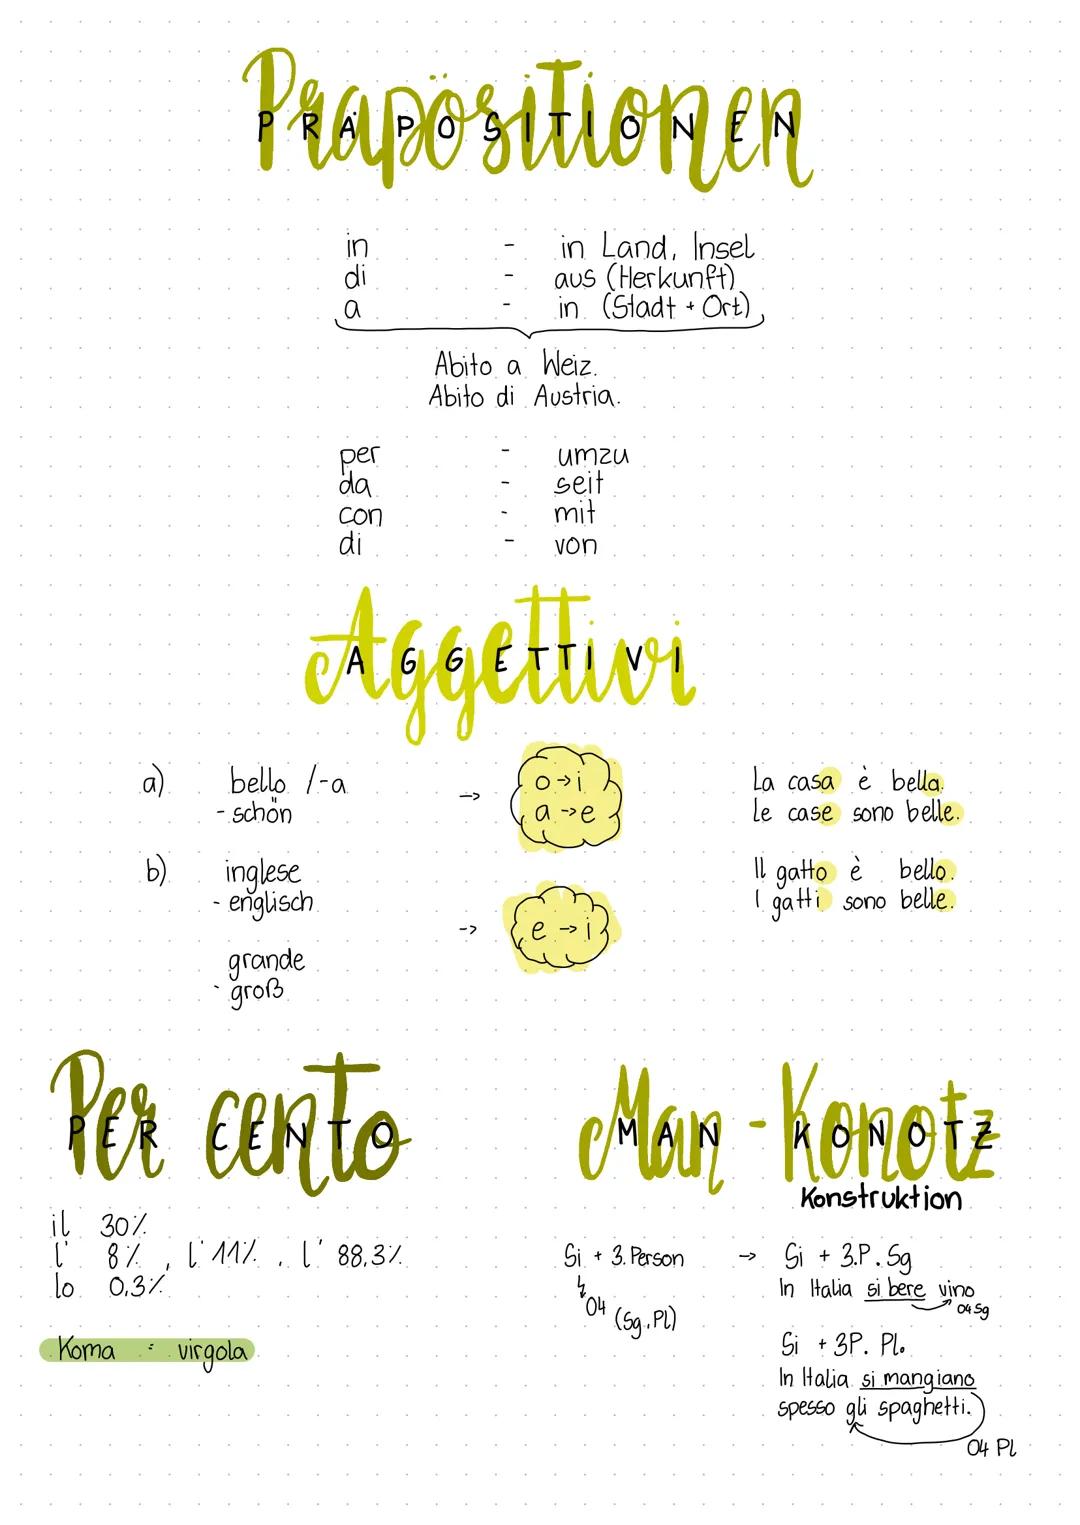 Präpösitionen
PRÄPOSITIONEN
in - in Land, Insel
di - aus (Herkunft)
a - in (Stadt + Ort)
Abito a Weiz.
Abito di Austria.
per - umzu
da - seit
con - mit
di - von
Aggettivi
AGGETTIVI
a) bello /-a -> o->i La casa è bella.
- schön a->e Le case sono belle.
b) inglese Il gatto è bello.
- englisch I gatti sono belle.
-> e->i
grande
- groß
Per cento
PER CENTO
il 30%
l' 8%, l'11%, l' 88,3%
lo 0,3%
Koma = virgola
Man-Konotz
MAN KONOTZ
Konstruktion
Si + 3. Person -> Si + 3.P. Sg
04 (Sg, Pl)
In Italia si bere vino
04 Sg
Si + 3P. Pl.
In Italia si mangiano
spesso gli spaghetti.
04 Pl